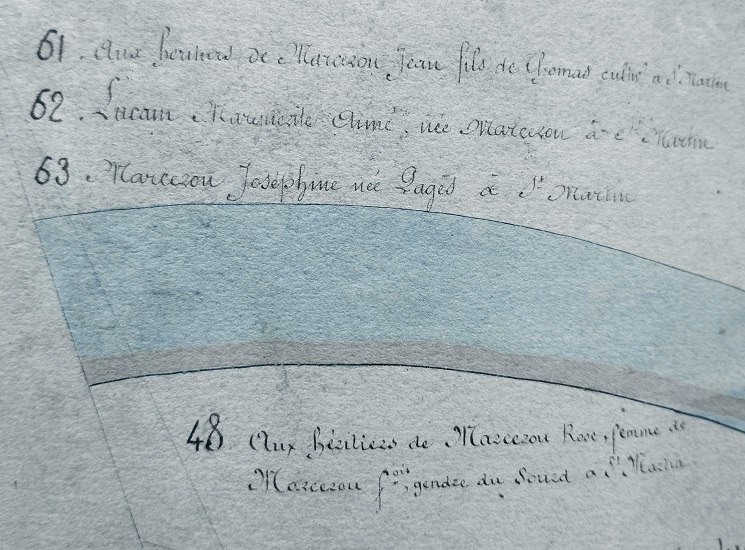 61. Aux heritiers de Marcerou Jean fils de Thomas cultivr a St Martin
62. Marguerite Aimé, née Marcerou à St Martin
63 Marcerou Joséphine née Pagès à St Martin
48 Aux héritiers de Marcerou Rose, femme de
Marcerou fois, gendre du Sourd a St Martin